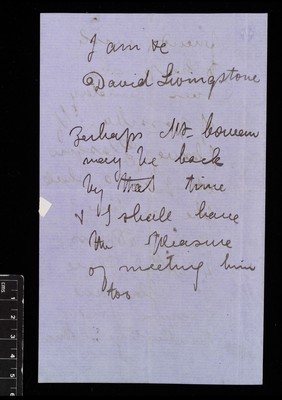 I am &c
David Livingstone
Perhaps Mr
may be back
by that time
& I shall have
the pleasure
of meeting him
too